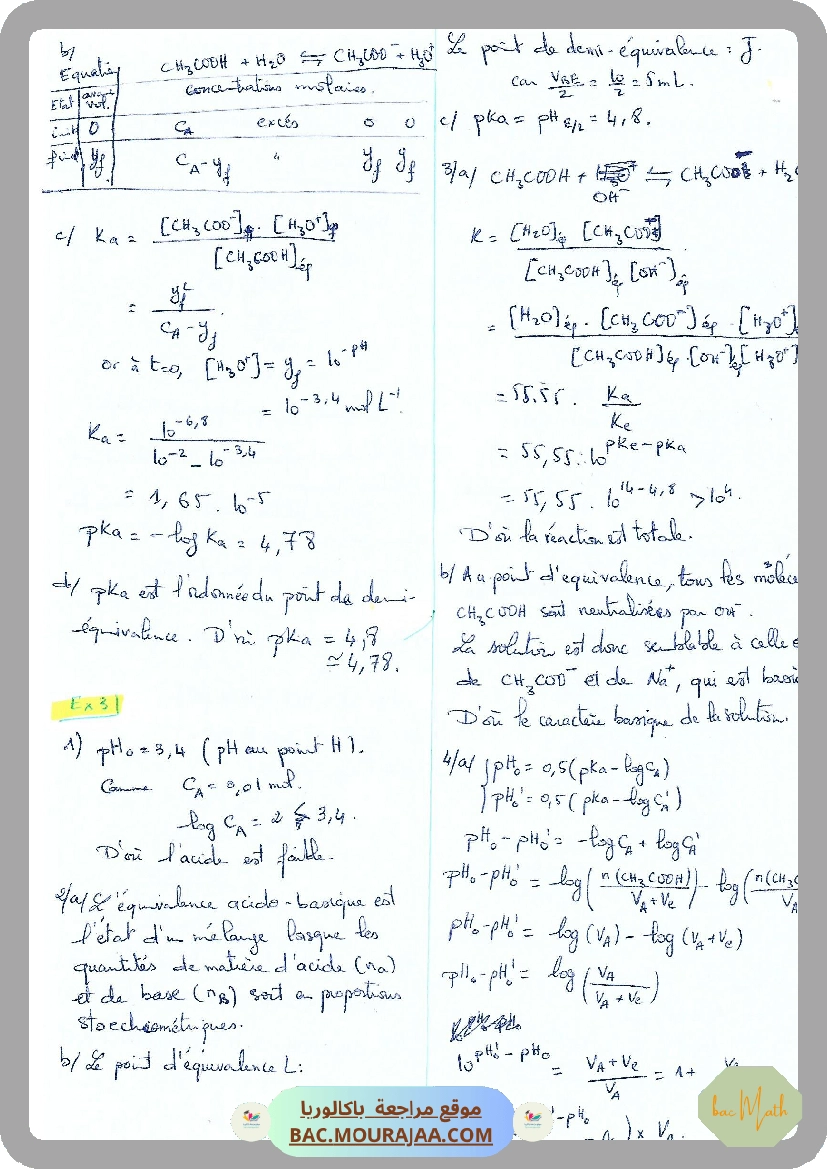 b/
Equation CH₃COOH + H₂O ⇌ CH₃COO⁻ + H₃O⁺
Etat avanc vol. concentrations molaires.
init 0 C_A excés 0 0
final y_f C_A - y_f " y_f y_f
c/ Ka = [CH₃COO⁻]_f . [H₃O⁺]_f / [CH₃COOH]_ép
= y_f² / (C_A - y_f)
or à t=0, [H₃O⁺] = y_f = 10^-pH
= 10^-3,4 mol L⁻¹.
Ka = 10^-6,8 / (10^-2 - 10^-3,4)
= 1,65 . 10^-5
pKa = -log Ka = 4,78
d/ pKa est l'ordonnée du point de demi-
équivalence. D'où pKa = 4,8
≃ 4,78.
Ex 3
1) pH₀ = 3,4 (pH au point H).
Comme C_A = 0,01 mol.
-log C_A = 2 < 3,4.
D'où l'acide est faible.
2/a/ L'équivalence acido-basique est
l'état d'un mélange lorsque les
quantités de matière d'acide (n_a)
et de base (n_B) sont en proportions
stoechiométriques.
b/ Le point d'équivalence L:
Le point de demi-équivalence : J.
car V_BE/2 = 10/2 = 5 mL.
c/ pKa = pH_E/2 = 4,8.
3/a/ CH₃COOH + OH⁻ ⇌ CH₃COO⁻ + H₂O
K = [H₂O]_ép [CH₃COO⁻] / [CH₃COOH]_ép [OH⁻]_ép
= [H₂O]_ép . [CH₃COO⁻]_ép . [H₃O⁺] / [CH₃COOH]_ép . [OH⁻]_ép [H₃O⁺]
= 55,55 . Ka / Ke
= 55,55 . 10^pKe-pKa
= 55,55 . 10^14-4,8 > 10⁴.
D'où la réaction est totale.
b/ Au point d'équivalence, tous les moléc
CH₃COOH sont neutralisées par OH⁻.
La solution est donc semblable à celle
de CH₃COO⁻ et de Na⁺, qui est basi
D'où le caractère basique de la solution.
4/a/ { pH₀ = 0,5(pKa - log C_A)
{ pH₀' = 0,5(pKa - log C_A')
pH₀ - pH₀' = -log C_A + log C_A'
pH₀ - pH₀' = log( n(CH₃COOH) / (V_A + V_e) ) - log( n(CH₃C / V_A
pH₀ - pH₀' = log(V_A) - log(V_A + V_e)
pH₀ - pH₀' = log( V_A / (V_A + V_e) )
10^pH₀' - pH₀ = (V_A + V_e) / V_A = 1 +
-pH₀ ) × V_A
موقع مراجعة باكالوريا
BAC.MOURAJAA.COM
bac Math